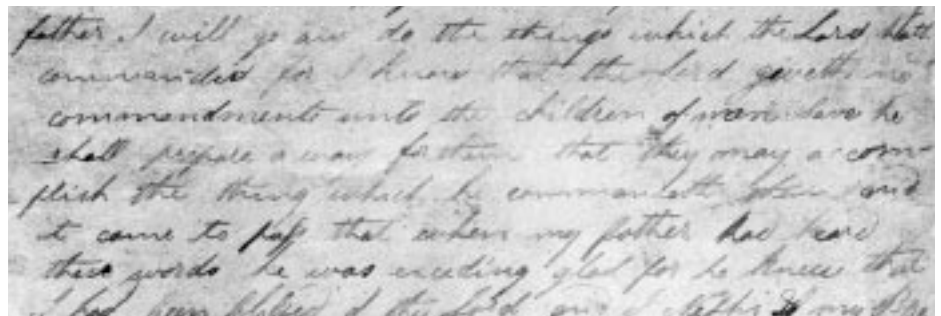 father I will go and do the things which the Lord hath
commanded for I know that the Lord giveth no
commandments unto the children of men save he
shall prepare a way for them that they may accom=
plish the thing which he commandeth them and
it came to pass that when my father had heard
these words he was exceding glad for he knew that
I had been blessed of the Lord and I Nephi